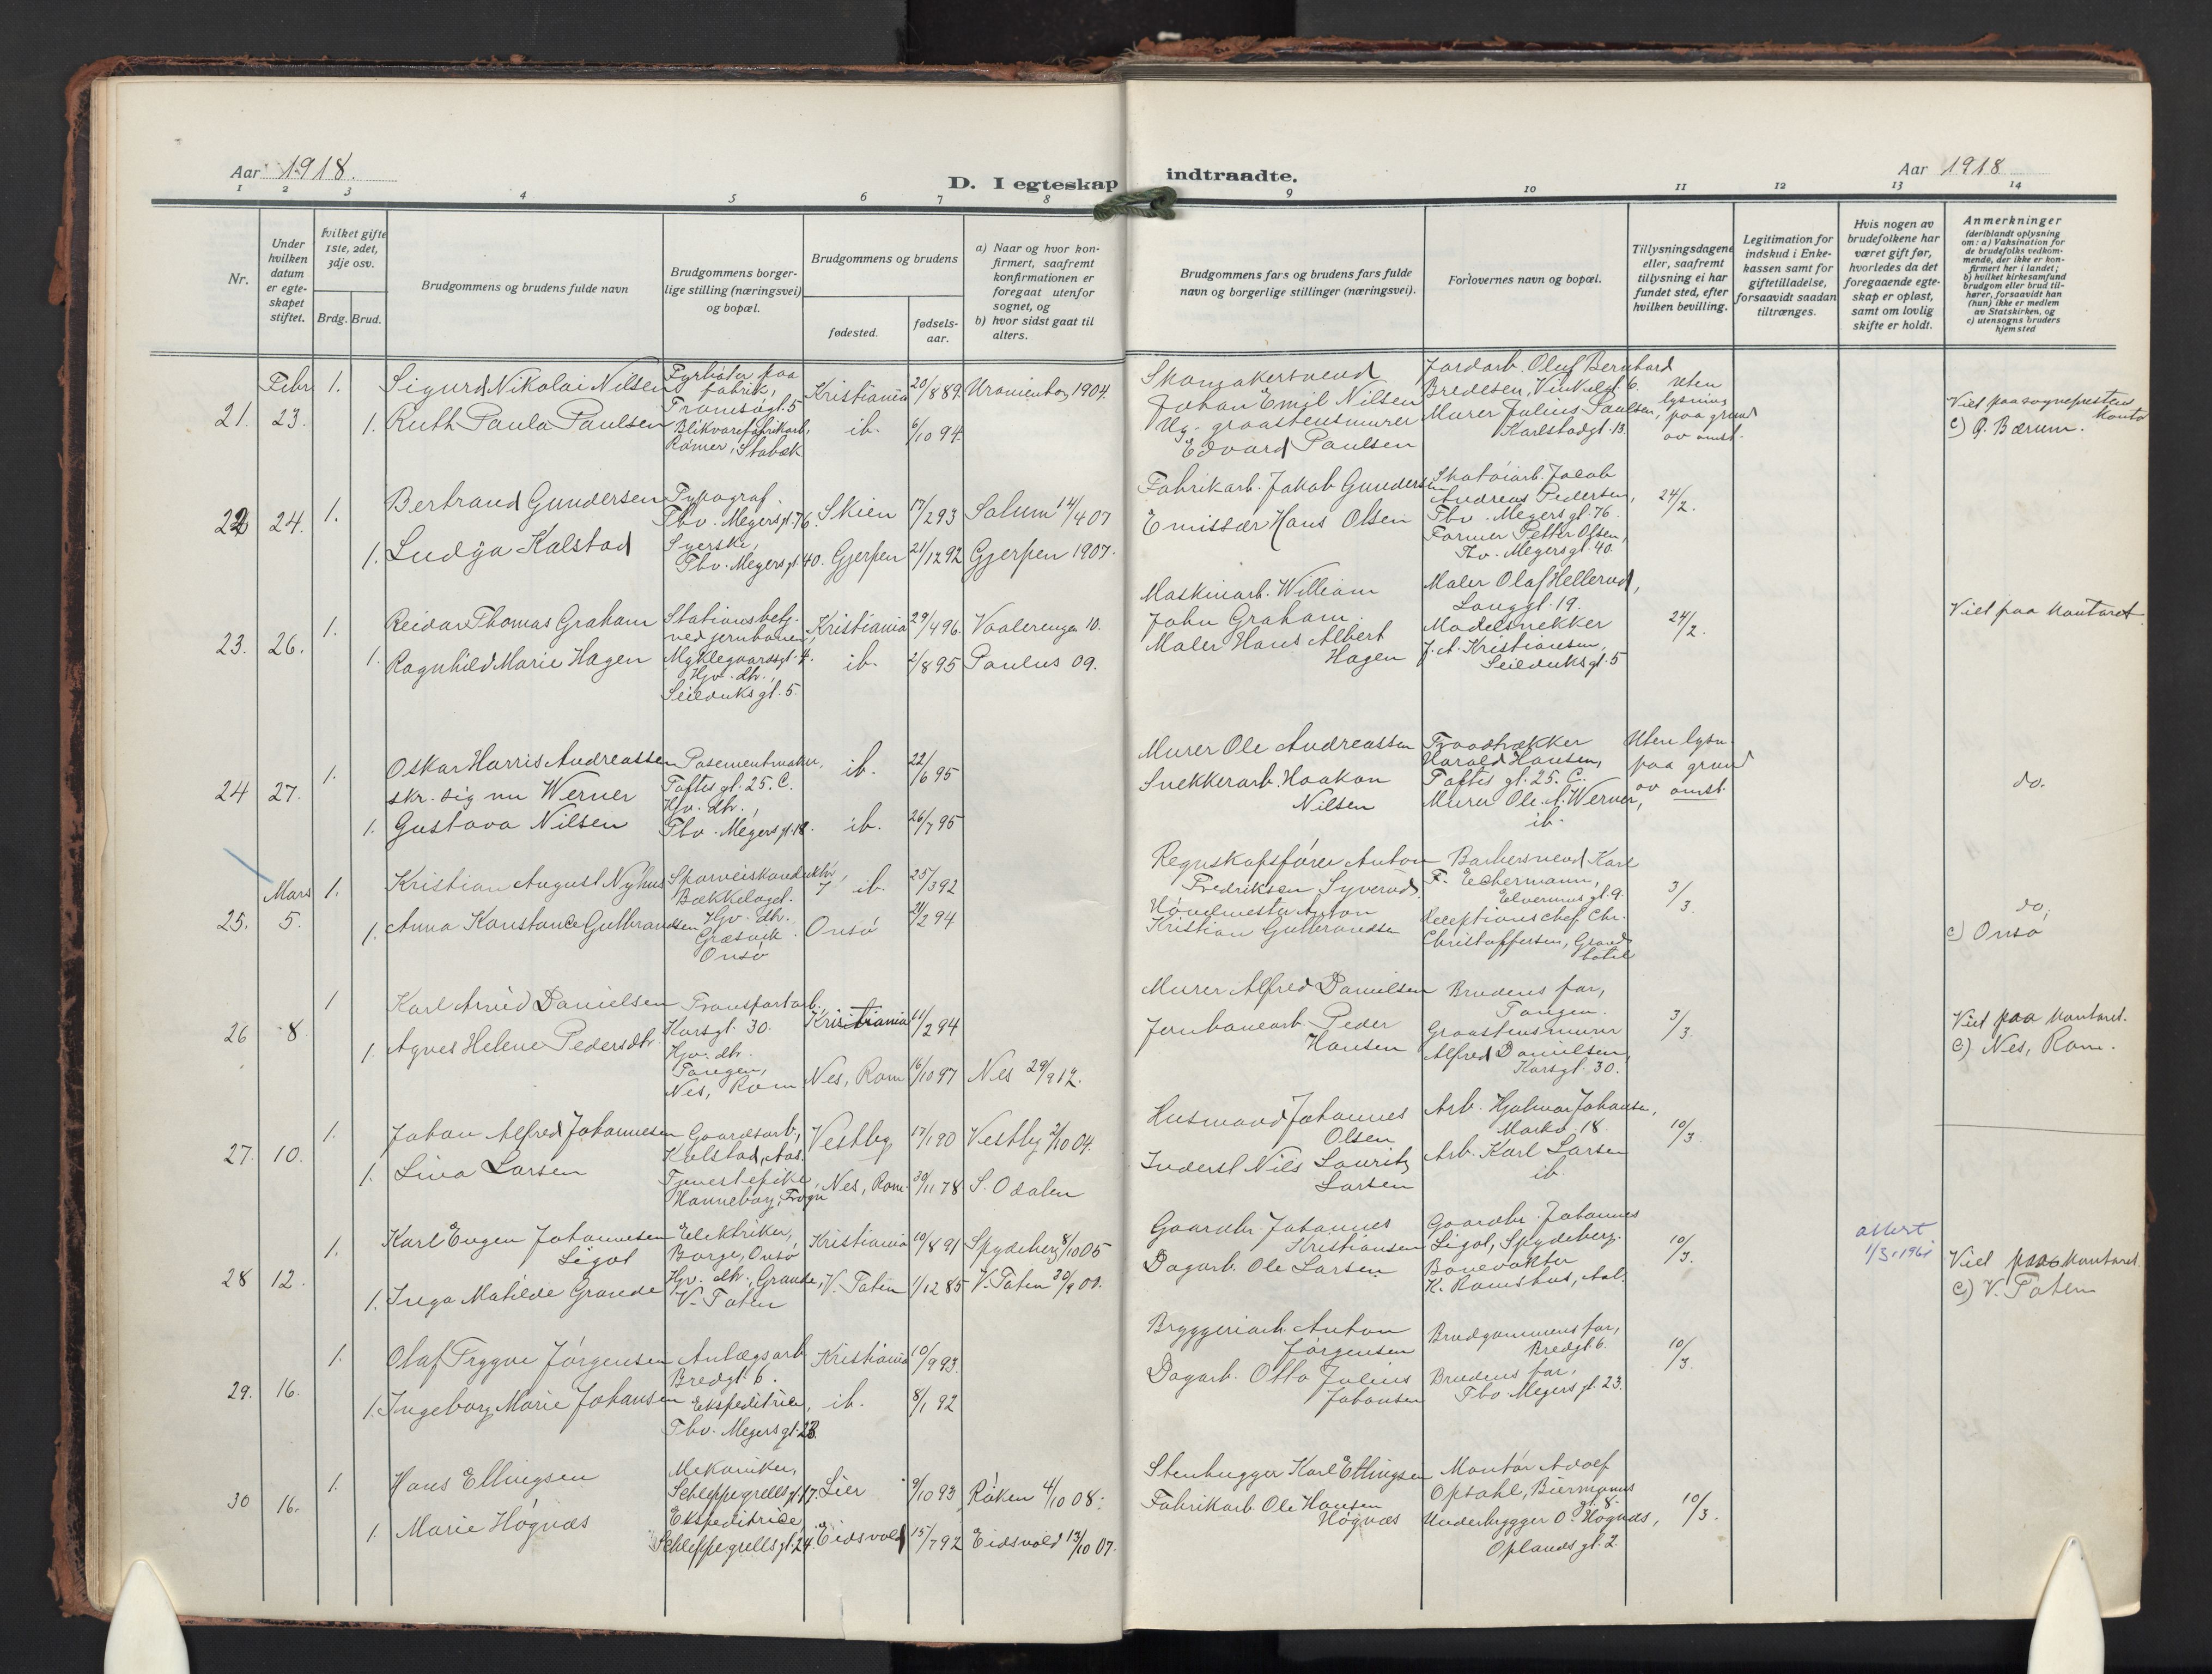 Aar 1918.
D. I egteskap indtraadte.
Aar 1918
1 2 3 4 5 6 7 8 9 10 11 12 13 14
Nr.
Under hvilken datum er egteskapet stiftet.
Hvilket gifte 1ste, 2det, 3dje osv.
Brdg. Brud.
Brudgommens og brudens fulde navn
Brudgommens borgerlige stilling (næringsvei) og bopæl.
Brudgommens og brudens
fødested.
fødselsaar.
a) Naar og hvor konfirmert, saafremt konfirmationen er foregaat utenfor sognet, og
b) hvor sidst gaat til alters.
Brudgommens fars og brudens fars fulde navn og borgerlige stillinger (næringsvei).
Forlovernes navn og bopæl.
Tillysningsdagene eller, saafremt tillysning ei har fundet sted, efter hvilken bevilling.
Legitimation for indskud i Enkekassen samt for giftetilladelse, forsaavidt saadan tiltrænges.
Hvis nogen av brudefolkene har været gift før, hvorledes da det foregaaende egteskap er opløst, samt om lovlig skifte er holdt.
Anmerkninger
(deriblandt oplysning om: a) Vaksination for de brudefolks vedkommende, der ikke er konfirmert her i landet;
b) hvilket kirkesamfund brudgom eller brud tilhører, forsaavidt han (hun) ikke er medlem av Statskirken, og
c) utensogns bruders hjemsted
21. Febr 23. 1.
Sigurd Nikolai Nilsen
Fyrbøter paa fabrik, Tromsøgt. 5
Kristiania 20/8 89. Uranienborg 1904.
Skomakersvend Johan Emil Nilsen
Jordarb. Oluf Bernhard Bredesen, Vinkelgt. 6.
Uten lysning paa grund av omst.
1. Ruth Paula Paulsen
Blikvarefabrikarb, Rømer, Stabæk
ib. 6/10 94.
Ug. graastensmurer Edvard Paulsen
Murer Julius Paulsen, Karlstadgt. 13.
Viet paa sogneprestens kontor
c) Ø. Bærum.
22 24. 1.
Bertrand Gundersen
Typograf. Thv. Meyersgt. 76.
Skien 17/2 93 Solum 14/4 07
Fabrikarb. Jakob Gundersen
Skotøiarb. Jacob Andreas Pedersen, Thv. Meyers gt. 76.
24/2.
1. Ludvja Kalstad
Syerske, Thv. Meyersgt. 40.
Gjerpen 21/12 92 Gjerpen 1907.
Emissær Hans Olsen
Former Petter Olsen, Thv. Meyersgt. 40.
23. 26. 1.
Reidar Thomas Graham
Stationsbetj. ved jernbanen, Myklegaardsgt. 4.
Kristiania 29/4 96. Vaalerengen 10.
Maskinarb. William John Graham.
Maler Olaf Hellerud, Langgt. 19.
24/2.
Viet paa kontoret
1. Ragnhild Marie Hagen
Hjv. dtr., Seilduksgt. 5.
ib. 2/8 95 Paulus 09.
Maler Hans Albert Hagen
Modelsnekker J. A. Kristiansen, Seilduksgt. 5
24 27. 1.
Oskar Harris Andreassen skr. sig nu Werner
Posementmaker, Toftes gt. 25. C.
ib. 22/6 95
Murer Ole Andreassen
Traadtrækker Harald Hansen, Toftes gt. 25. C.
Uten lysn. paa grund av omst.
do.
1. Gustava Nilsen
Hjv. dtr., Thv. Meyersgt. 18.
ib. 26/7 95
Snekkerarb. Haakon Nilsen
Murer Ole A. Werner, ib.
25. Mars 5. 1.
Kristian August Nyhus
Sporveiskonduktør, Bækkelaget.
ib. 25/3 92
Regnskapsfører Anton Fredriksen Syverud.
Barbersvend Karl F. Echermann, Elverumsgt. 9.
3/3
do,
c) Onsø
1. Anna Konstance Gulbrandsen
Hjv. dtr. Græsvik Onsø
Onsø 21/2 94
Kristian Gulbrandsen
Receptionschef Chr. Christoffersen, Grand hotel
26 8. 1
Karl Arvid Danielsen
Transportarb. Korsgt. 30.
Kristiania 11/2 94
Murer Alfred Danielsen
Brudens far, Tangen.
3/3.
Viet paa kontoret.
c) Nes, Rom.
1. Agnes Helene Pedersdtr.
Hjv. dtr. Tangen, Nes, Rom
Nes, Rom 16/10 97 Nes 29/9 12.
Jernbanearb. Peder Hansen
Graastensmurer Alfred Danielsen, Korsgt. 30.
27. 10. 1.
Johan Alfred Johannesen
Gaardsarb., Kalstad, Aas.
Vestby 17/1 90 Vestby 2/10 04.
Husmand Johannes Olsen
Arb. Hjalmar Johansen, Markv. 18.
10/3.
1. Lina Larsen
Tjenestepike, Hanneborg, Frogn
Nes, Rom. 30/11 78 S. Odalen
Inderst Nils Lauritz Larsen
Arb. Karl Larsen ib.
28 12. 1.
Karl Eugen Johannesen Ligot
Elektriker, Borge, Onsø
Kristiania 10/8 91 Spydeberg 8/10 05
Gaardbr. Johannes Kristiansen
Gaardbr. Johannes Ligot, Spydeberg.
10/3.
attest 1/3. 1961
Viet paa kontoret
c) V. Toten
1. Inga Matilde Grande
Hjv. dtr., Grande, V. Toten
V. Toten 1/12 85 V. Toten 30/9 00.
Dagarb. Ole Larsen
Banevokter K. Ramstus, Aal.
29. 16. 1.
Olaf Trygve Jørgensen
Anlægsarb Bredgt. 6.
Kristiania 10/9 93.
Bryggeriarb. Anton Jørgensen
Brudgommens far, Bredgt. 6.
10/3.
1. Ingeborg Marie Johansen
Ekspeditrice, Thv. Meyersgt. 23.
ib. 8/1 92
Dagarb. Otto Julius Johansen
Brudens far, Thv Meyers gt. 23.
30 16. 1.
Hans Ellingsen
Mekaniker, Schleppegrellsgt. 17.
Lier 9/10 93 Røken 4/10 08.
Stenhugger Karl Ellingsen
Montør Adolf Opsahl, Biermanns gt. 8.
10/3.
1. Marie Høgnæs
Ekspeditrice Schleppegrellsgt. 24.
Eidsvold 15/7 92 Eidsvold 13/10 07.
Fabrikarb. Ole Hansen Høgnæs
O. Høgnæs, Oplands gt. 2.